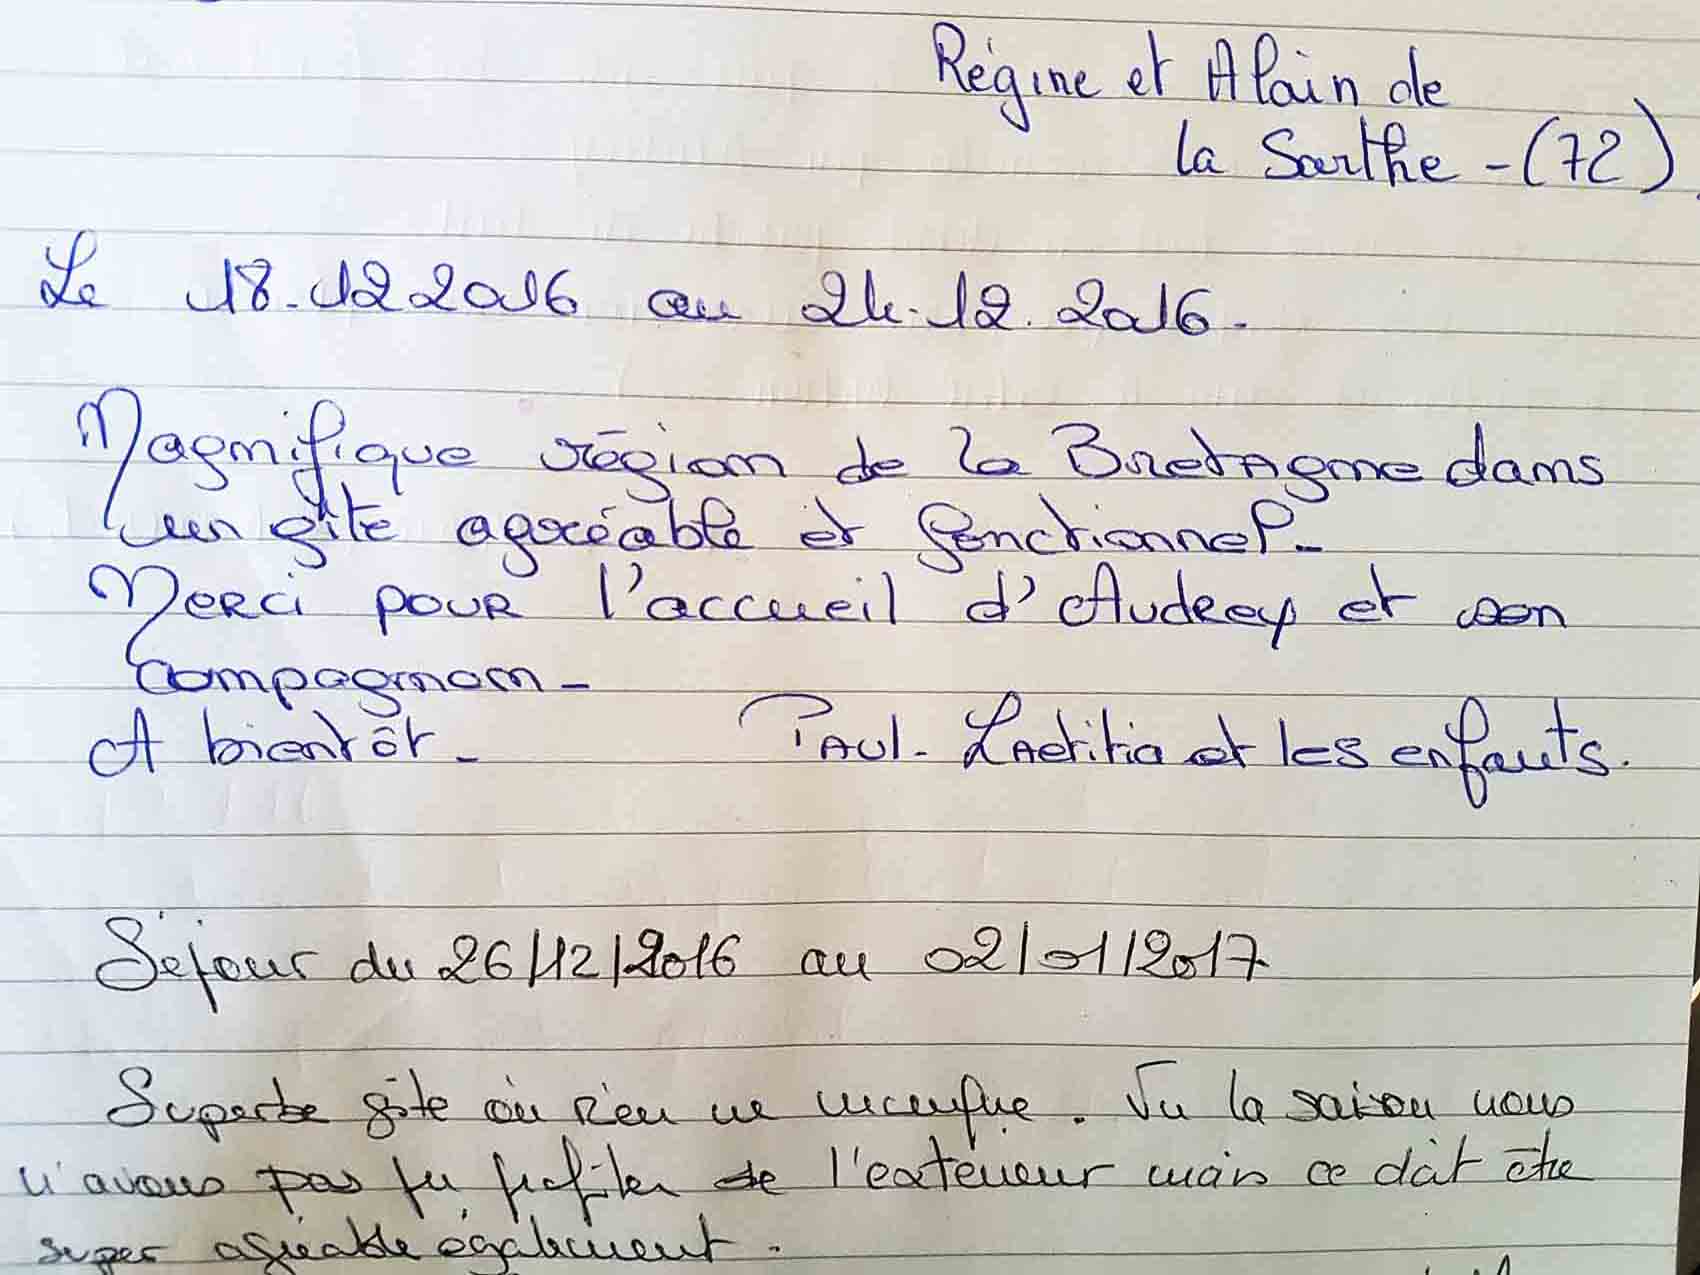 Régine et Alain de
la Sarthe - (72)
Le 18.12 2016 au 24.12.2016.
Magnifique région de la Bretagne dans
un gîte agréable et fonctionnel -
Merci pour l'accueil d'Audrey et son
compagnon -
A bientôt - Paul - Laetitia et les enfants.
Séjour du 26/12/2016 au 02/01/2017
Superbe gîte où rien ne manque. Vu la saison nous
n'avons pas pu profiter de l'extérieur mais ce doit être
super agréable également.